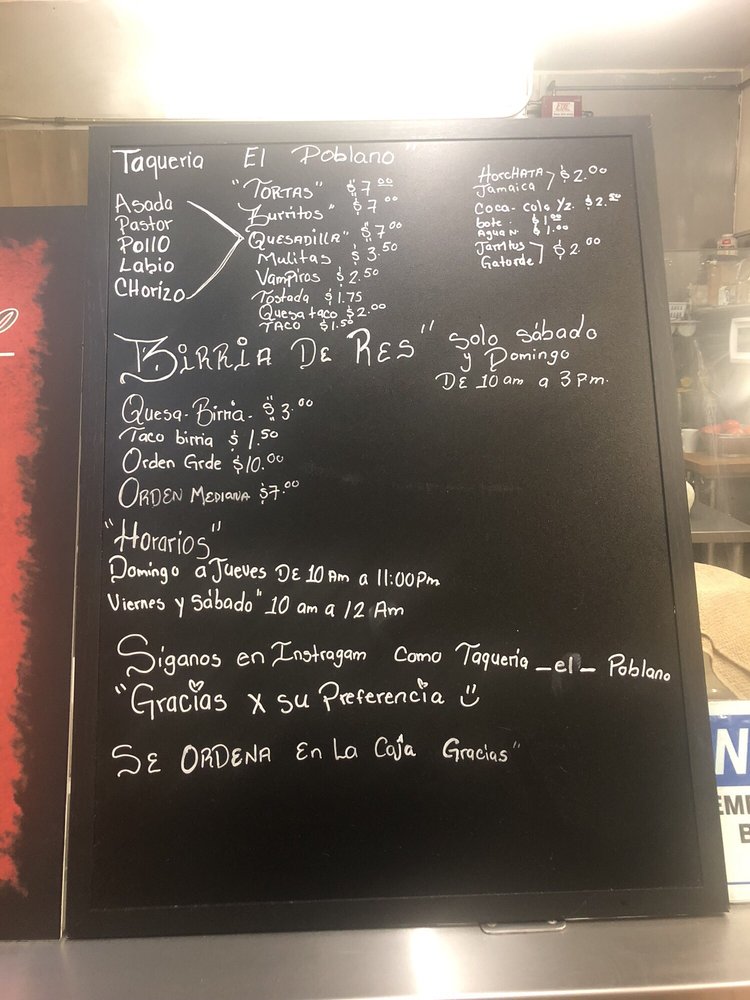 Taqueria El Poblano"
Asada
Pastor
Pollo
Labio
CHorizo
"TORTAS" $7.00
Burritos" $7.00
QUESADILLA" $7.00
Mulitas $3.50
Vampiros $2.50
Tostada $1.75
Quesa taco $2.00
TACO $1.50
HORCHATA
Jamaica $2.00
Coca-cola 1/2. $2.50
bote. $1.00
Agua N. $1.00
Jarritos
Gatorde $2.00
BIRRIA DE RES" Solo sábado
y Domingo
DE 10 am a 3 Pm.
Quesa-Birria- $3.00
Taco birria $1.50
Orden Grde $10.00
ORDEN MEDIANA $7.00
"Horarios"
Domingo a Jueves DE 10 Am a 11:00 Pm
Viernes y Sábado" 10 am a 12 Am
Síganos en Instragam como Taqueria_el_Poblano
"Gracias x su Preferencia
SE ORDENA En La Caja Gracias"